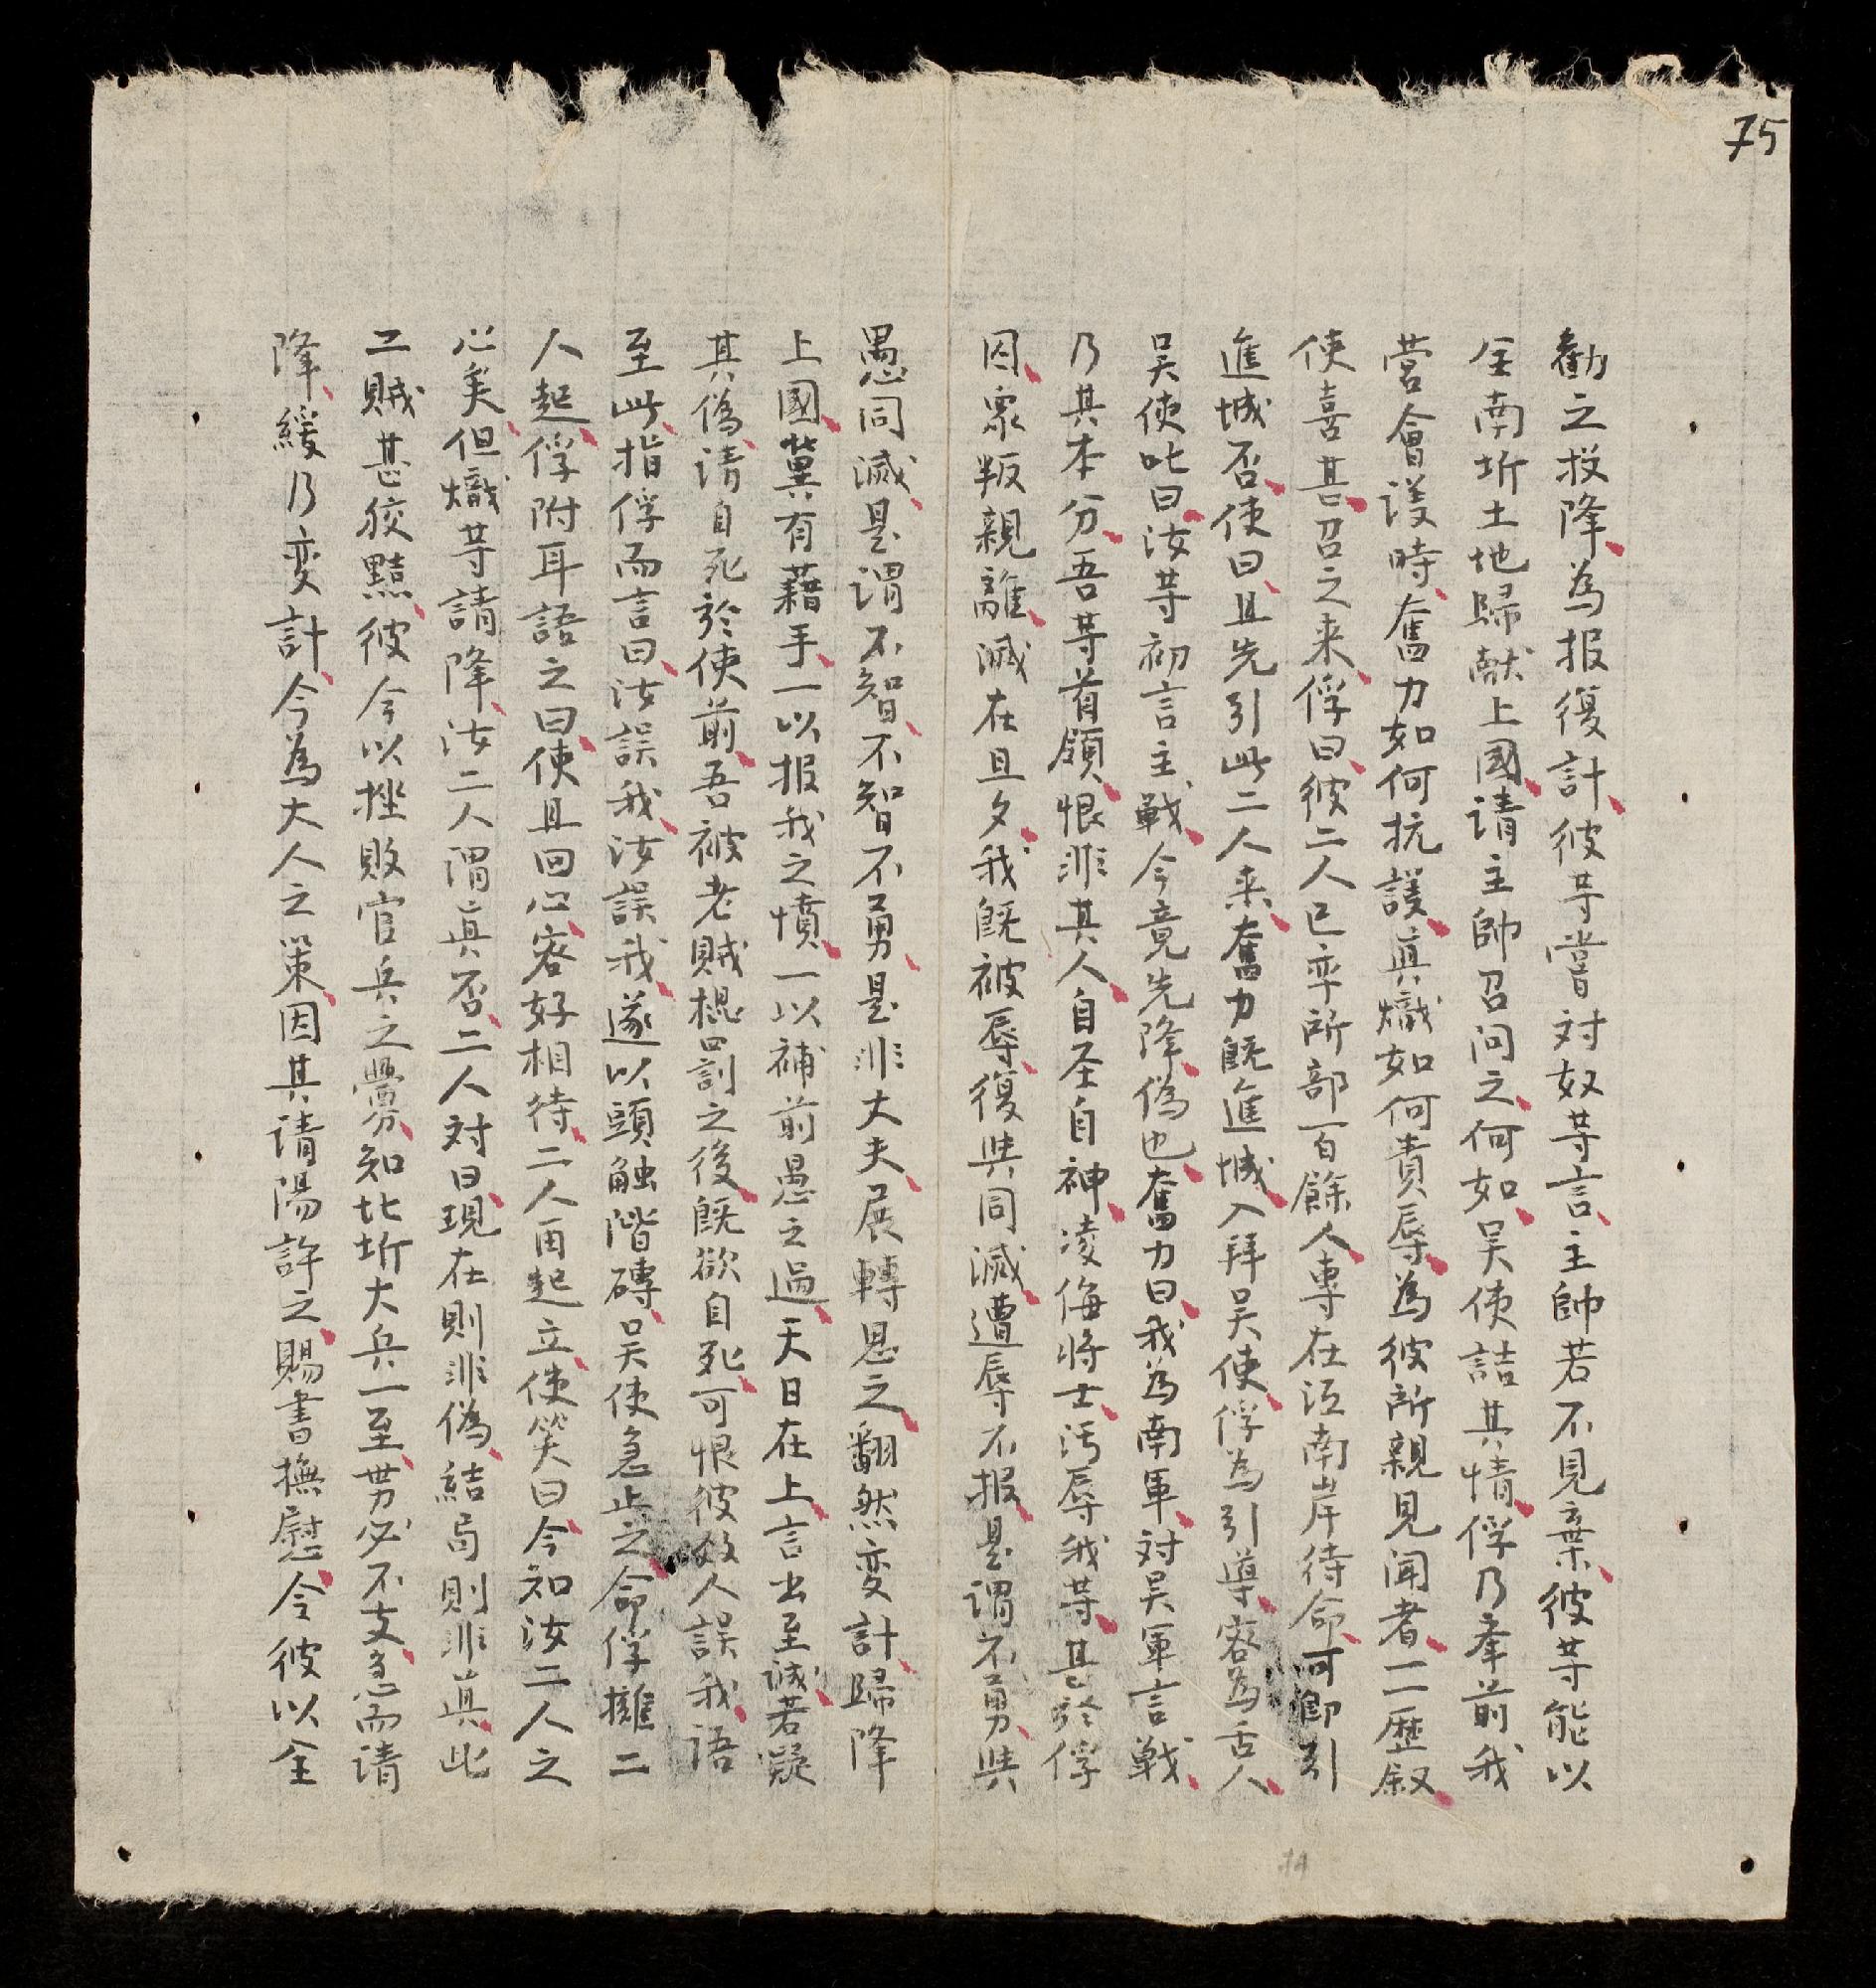 75
勸之投降為报復計彼等嘗対奴等言主帥若不見棄彼等能以
全南圻土地歸献上國请主帥召问之何如吴使詰其情俘乃牽前我
营會議時奮力如何抗護真熾如何責辱為彼所親見闻者一一歷叙
使喜甚召之来俘曰彼二人已率所部一百餘人専在江南岸待命可即引
進城否使曰且先引此二人来奮力既進城入拜吴使俘為引導容為舌人
吴使叱曰汝等初言主戦今竟先降偽也奮力曰我為南軍対吴軍言戦
乃其本分吾等首領恨非其人自圣自神凌侮将士汚辱我等甚於俘
囚衆叛親離滅在旦夕我既被辱復與同滅遭辱不报是谓不勇與
愚同滅是谓不智不智不勇是非大夫展轉思之翻然变計歸降
上國冀有藉手一以报我之憤一以補前愚之過天日在上言出至诚若疑
其偽请自死於使前吾被老贼榥罰之後既欲自死可恨彼效人誤我语
至此指俘而言曰汝誤我汝誤我遂以頭触階磚吴使急止之命俘擁二
人起俘附耳語之曰使且回心容好相待二人再起立使笑曰今知汝二人之
心矣但熾等請降汝二人谓真否二人対曰現在則非偽結局則非真此
二贼甚狡黠彼今以挫敗官兵之釁知北圻大兵一至势必不支急而请
降緩乃变計今為大人之策因其请陽許之赐書撫慰令彼以全
14